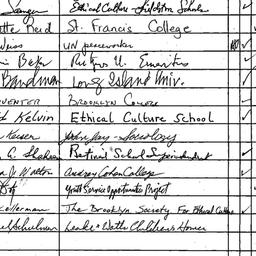 Sanger Ethical Culture Fieldston Schools
Reid St. Francis College
Weiss UN peaceworker
Rutgers U. Emeritus
Bandman Long Island Univ.
VENTER BROOKLYN COLLEGE
Kelvin ETHICAL CULTURE SCHOOL
Keiser John Jay - Sociology
G. Retired School Superintendent
J. Walton Audrey Cohen College
Youth Service Opportunities Project
Kellerman The Brooklyn Society For Ethical Culture
Schulman Leake & Watts Children's Home